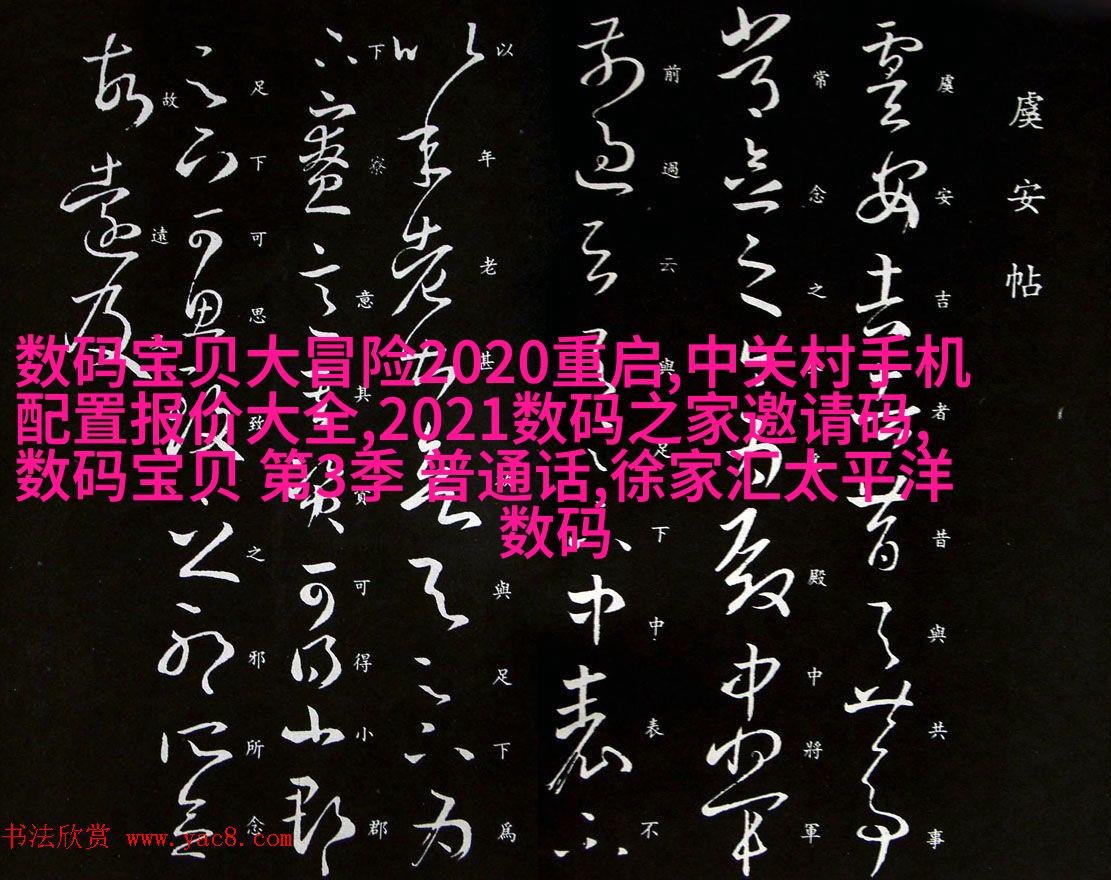 虞安帖
虞安吉者昔與共事
常念之今為殿中將軍
前過云與足下中表不
以年老甚欲與足下為
下寮意其資可得小郡
足下可思致之邪所念
故遠及
数码宝贝大冒险2020重启,中关村手机
配置报价大全,2021数码之家邀请码,
数码宝贝 第3季 普通话,徐家汇太平洋
数码
书法欣赏 www.yac8.com